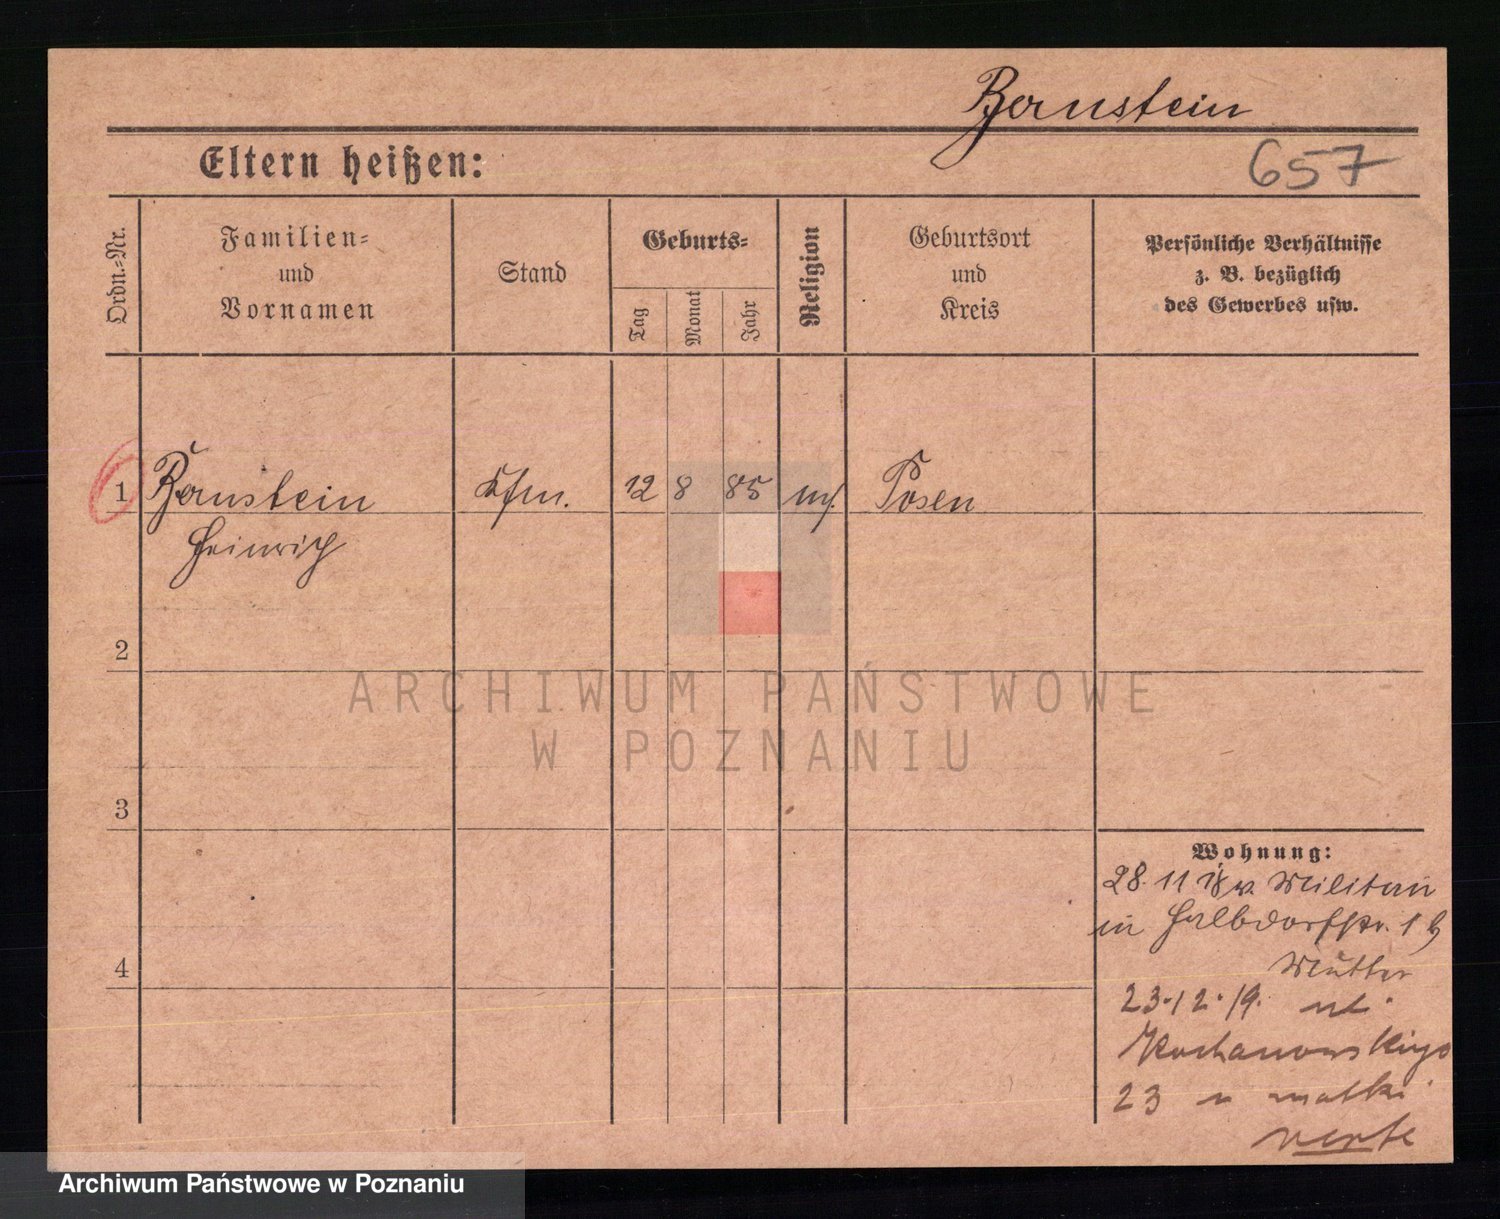 Bernstein
Eltern heißen:
657
Ordn.-Nr.
Familien-
und
Vornamen
Stand
Geburts-
Tag
Monat
Jahr
Religion
Geburtsort
und
Kreis
Persönliche Verhältnisse
z. B. bezüglich
des Gewerbes usw.
1 Bernstein Kfm. 12 8 85 Posen
Heinrich
2
3
4
Wohnung:
28. 11 18 v. Militär
in Halbdorfstr. 1 b
Mutter
23.12.19. ul.
Kochanowskiego
23 u matki
verte
ARCHIWUM PAŃSTWOWE
W POZNANIU
Archiwum Państwowe w Poznaniu